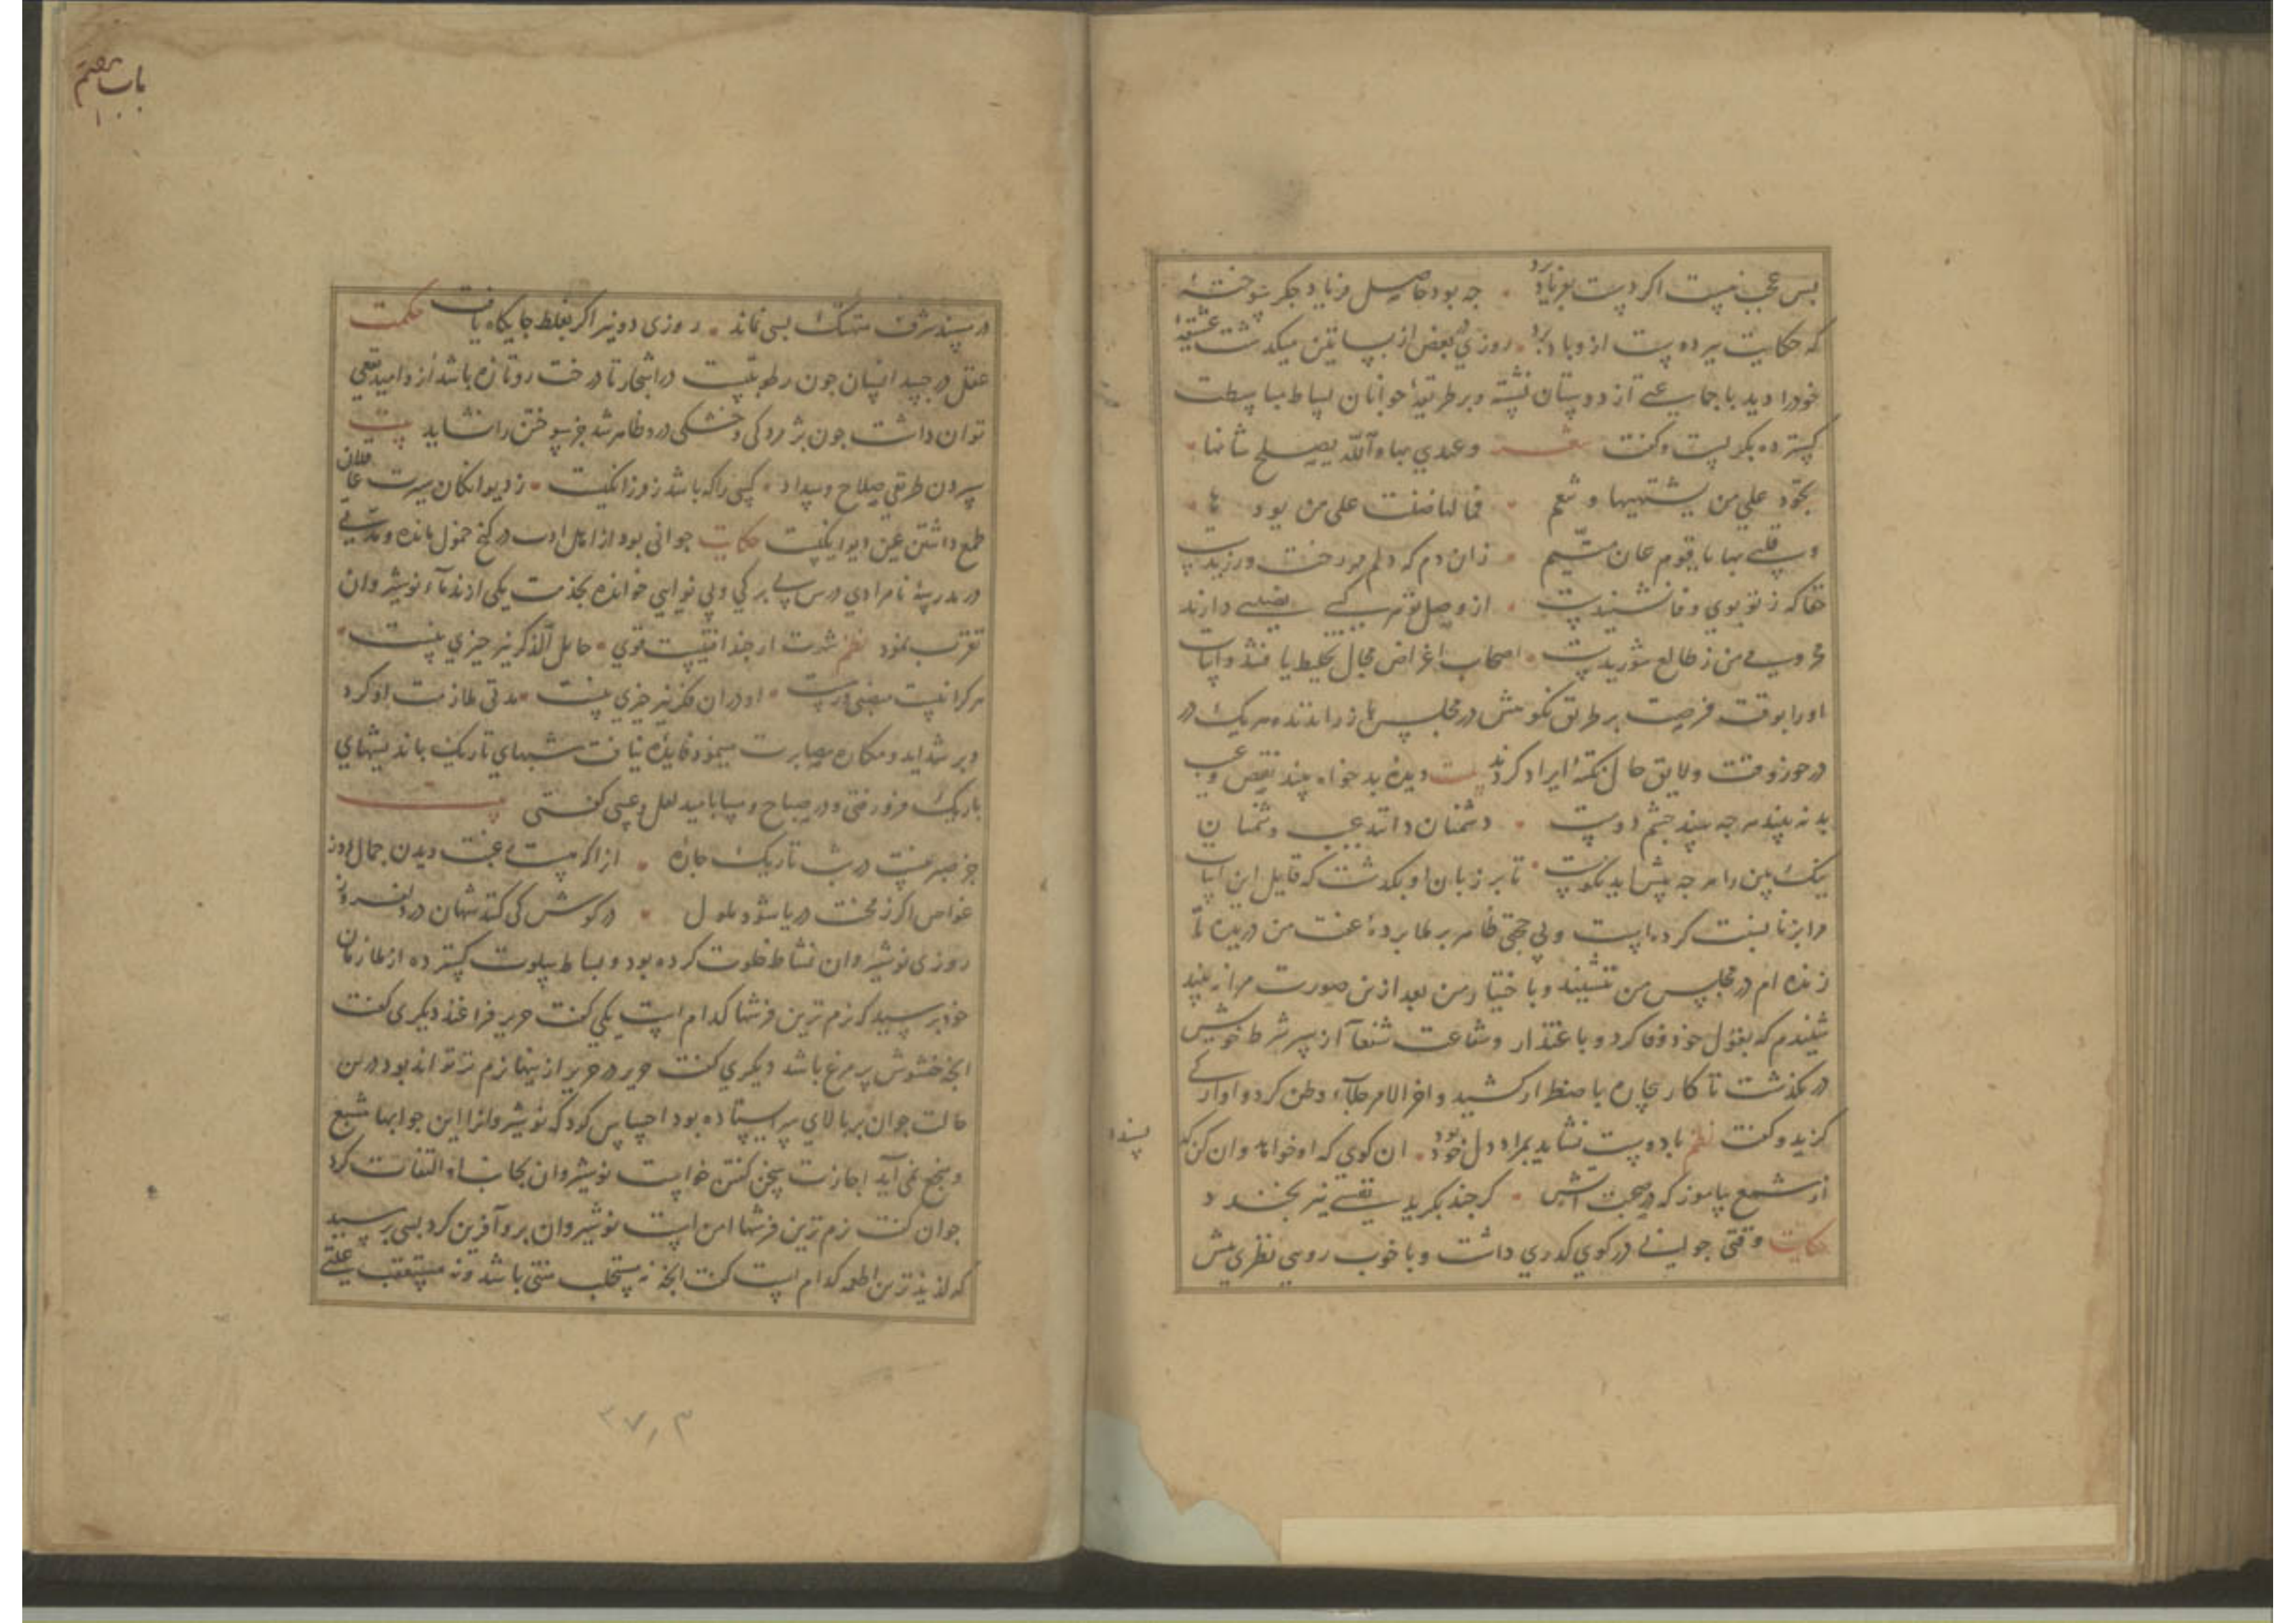 بس عجب نیست اگر دست بفریاد برد • چه بود حاصل فریاد جگر سوخته
که حکایت بر دوست از و باد برد • روزی در بعض از بساتین میکذشت عشیقه
خودرا دید با جماعتی از دوستان نشسته و بر طریقه جوانان بساط مباسطت
کسترده بکریست و کفت شعر وعدی میاه الله یصبح شانها •
تجود علی من یشتهیها و تنعم • فما لها ضنت علی من یود ها •
• زان دم که دلم مهر رخت ورزیدست
حقا که ز تو بوی وفا نشنیدست • از وصل تو هر کسی نصیبی دارند
محرومی من ز طالع شوریدست • اصحاب اغراض مجال تخلیط یافتند و ابیات
اورا بوقت فرصت بر طریق نکوهش در مجلس ها زراندند و هر یک در
در خور وقت و لایق حال نکته ایراد کردند بیت دیده بد خواه بیند نقص و عیب
بد نه بیند هر چه بیند چشم دوست • دشمنان دانند عیب دشمنان
نیک بین را هر چه پیش آید نکوست • تا بر زبان او بکذشت که قایل این ابیات
مرا بزنا نسبت کرده است و بی حجتی ظاهر بر ملا پرده عفت من دریده تا
زنده ام در مجلس من ننشیند و با ختیار من بعد ازین صورت مرا نه بیند
شنیدم که بقول خود وفا کرد و با عتذار و شفاعت شفعا از سر شرط خویش
در نکذشت تا کار بیچاره باضطرار کشید و اخر الامر جلاء وطن کرد و اوارکی
کزید و کفت نظم با دوست نشاید بمراد دل خود بود • ان کوی که او خواهد و ان کن که
پسندد
از شمع بیاموز که در صحبت آتش • هر چند بکرید نفسی نیز بخندد
حکایت وقتی جوانی در کوی کذری داشت و با خوب رویی نظری بیش
باب هفتم
در پسند شرف متهتک بسی نماند • روزی دو نیز اکر بغلط جایکاه یافت حکمت
عقل در جسد انسان چون رطوبتیست در اشجار تا درخت رو تازه باشد ازو امید نفعی
توان داشت چون پژمردکی و خشکی درو ظاهر شد جز سوختن را نشاید بیت
سپردن طریق صلاح و سداد • کسی را که باشد ز فرزانکیست • ز دیوانکان سیرت عاقلان
طمع داشتن عین دیوانکیست حکایت جوانی بود از اهل ادب در کنج خمول مانده و مدتی
در مدرسه نامرادی درس بی برکی و بی نوایی خوانده بخدمت یکی از ندماء نوشیروان
تقرب نمود نظم شهرت ار چند افتیست قوی • خامل الذکر نیز چیزی نیست •
هر کرا نیست • او در ان فکر نیز چیزی نیست • مدتی ملازمت او کرد
و بر شداید و مکاره مصابرت مینمود فایده نیافت شبهای تاریک باندیشهای
باریک فرو رفتی و در صباح و مسا بامید لعل و عسی کفتی بیت
جز صبر نیست در شب تاریک چاره • انرا که هست رغبت دیدن جمال روز
غواص اکر ز محنت دریا شود ملول • در کوش کی کند شهان در دلفروز
روزی نوشیروان نشاط خلوت کرده بود و بساط سلوت کسترده از ملازمان
خود پرسید که نرم ترین فرشها کدام است یکی کفت حریر فراغند دیکری کفت
انچه حشوش پر مرغ باشد دیکری کفت حریر در حریر از ینها نرم تر تواند بود درین
حالت جوان بر بالای سر ایستاده بود احساس کرد که نوشیروانرا این جوابها مشبع
و منجح نمی آید اجازت سخن کفتن خواست نوشیروان بجانب او التفات کرد
جوان کفت نرم ترین فرشها امن است نوشیروان برو آفرین کرد پس پرسید
که لذیذ ترین اطعمه کدام است کفت انچه نه مستجلب منتی باشد و نه مستعقب علتی
۲۷٫۳